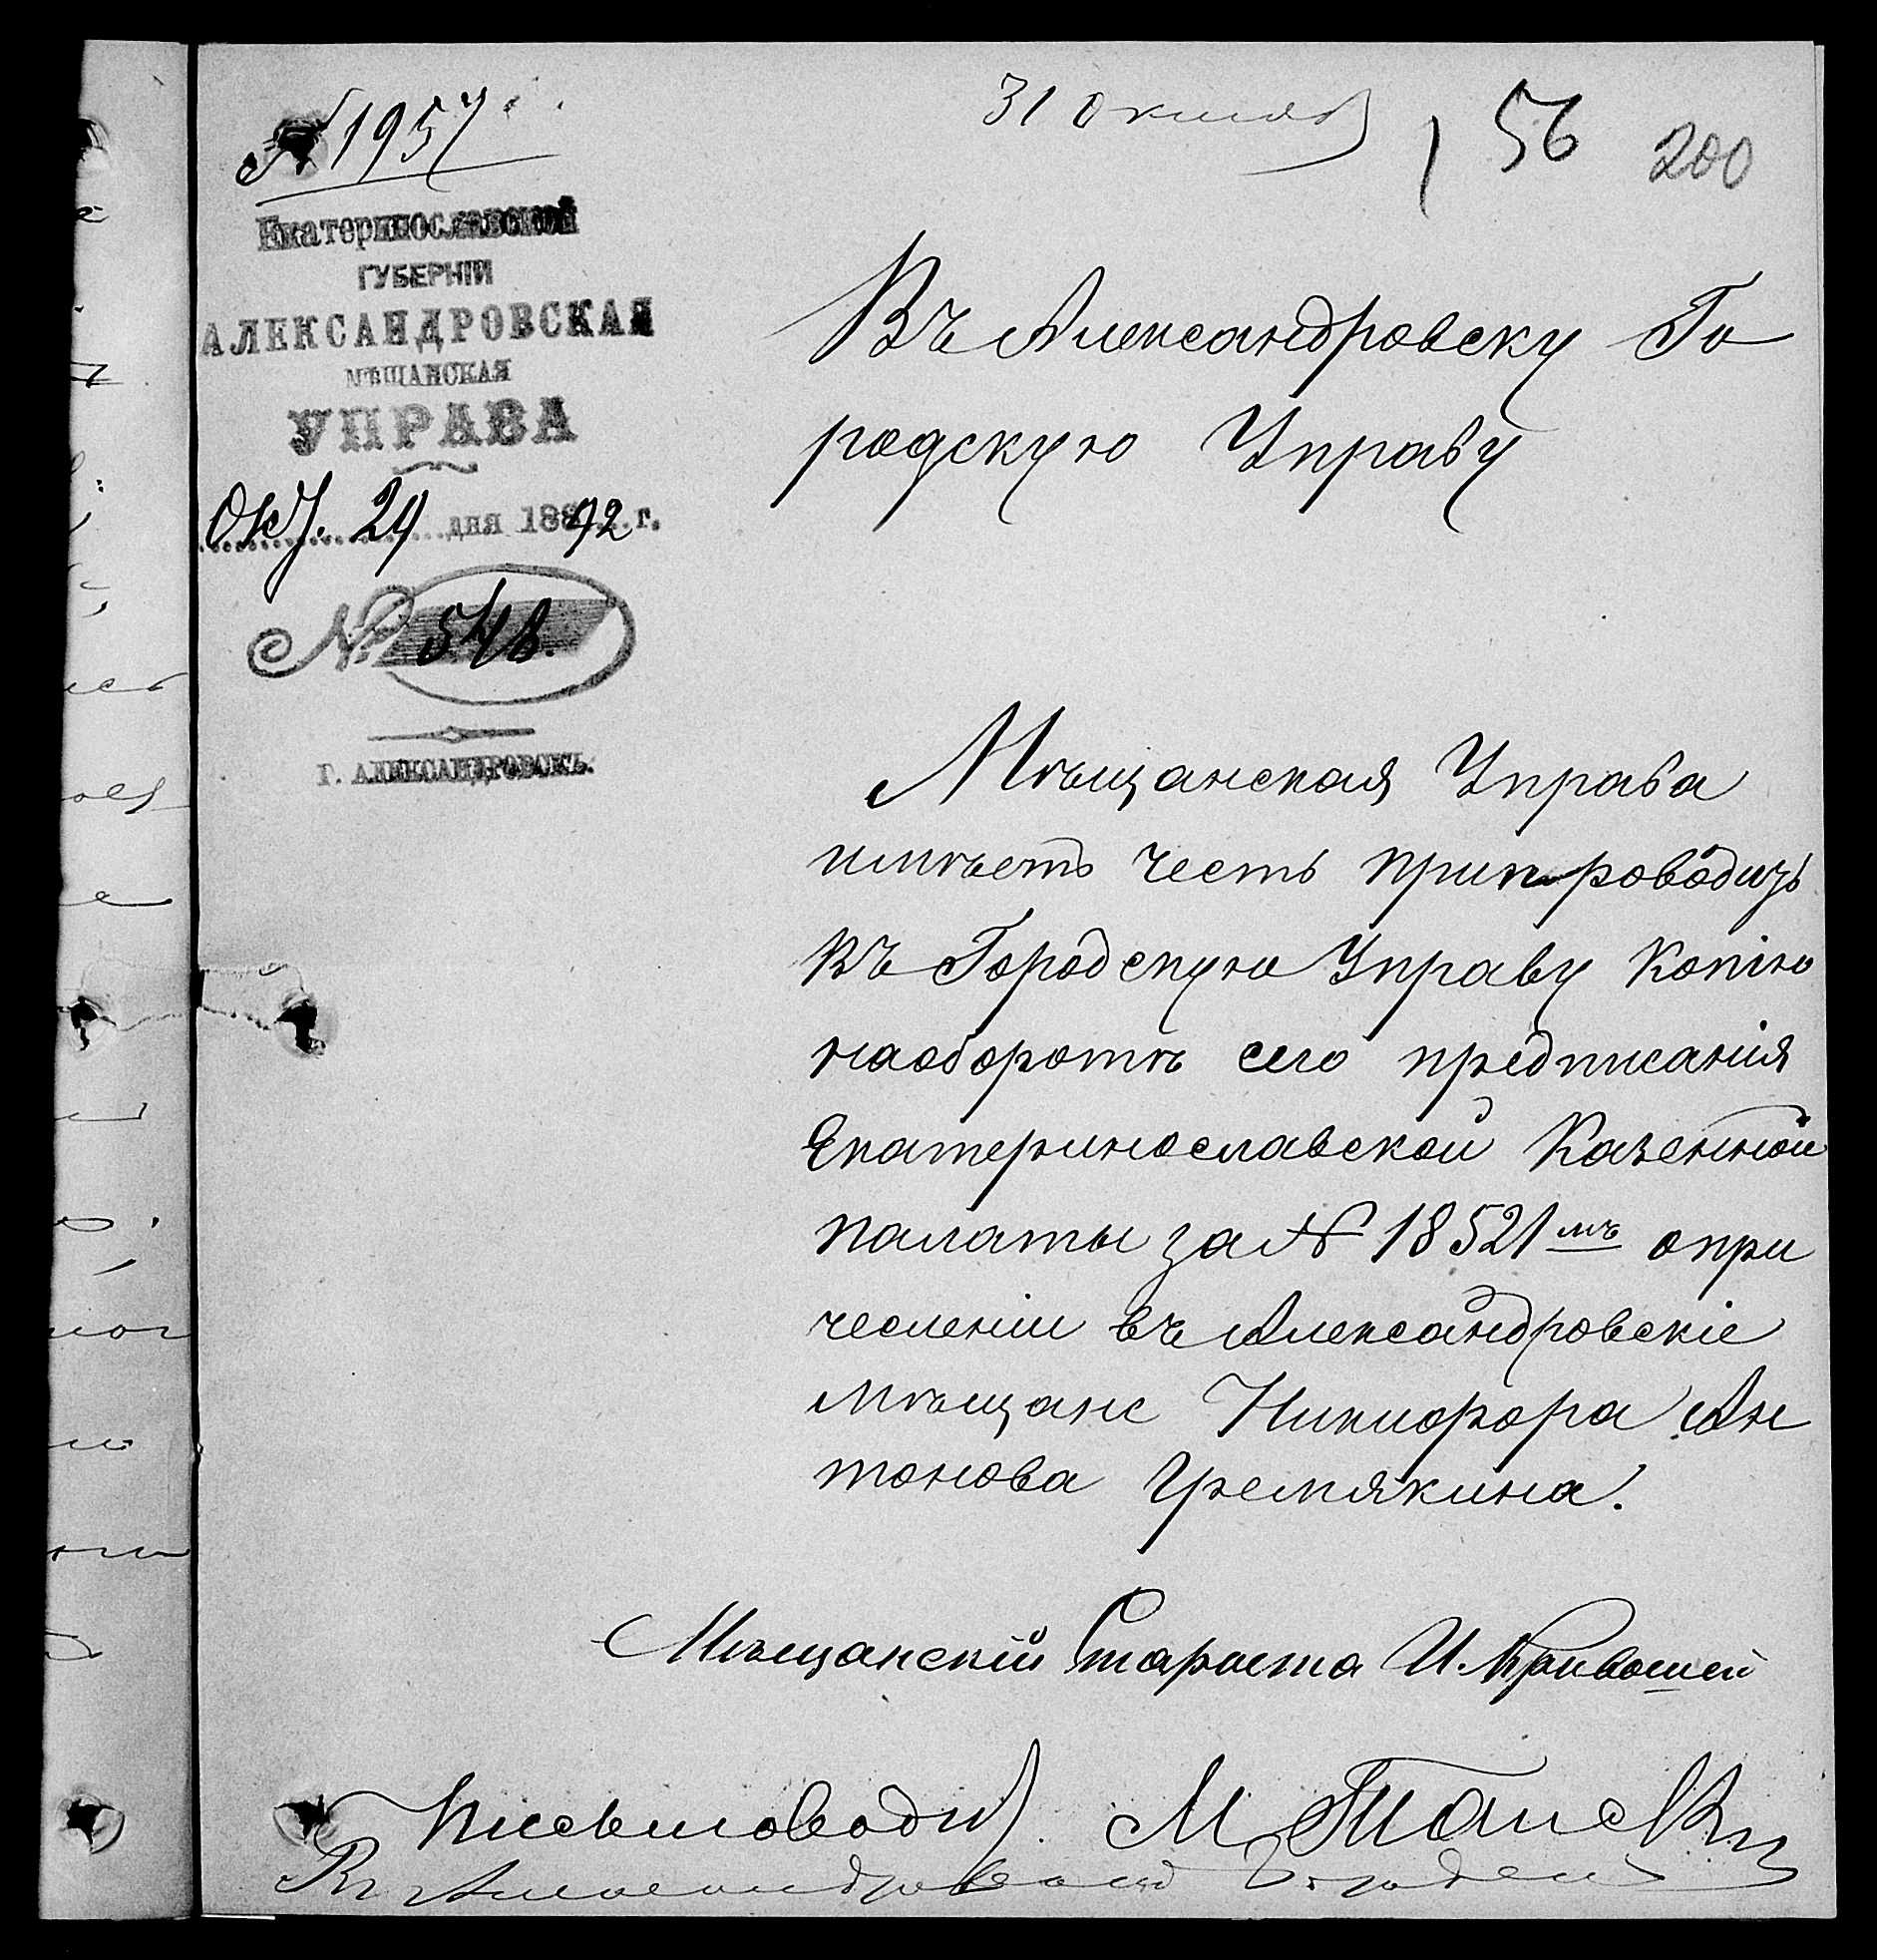 № 1957
31 октября
56
200
Екатеринославской
ГУБЕРНІИ
АЛЕКСАНДРОВСКАЯ
МѢЩАНСКАЯ
УПРАВА
Окт. 24 дня 1892 г.
№ 548.
Г. АЛЕКСАНДРОВСКЪ.
Въ Александровску Го
родскую Управу
Мѣщанская Управа
имѣетъ честь припроводить
въ Городскую Управу копію
наоборотѣ сего предписанія
Екатеринославской Казенной
палаты за № 18521мъ опри
чесленіи въ Александровскіе
мѣщане Никифора Ан
тонова Гремякина.
Мѣщанскій Староста И. Кривошей
Письмоводит.
Въ Александровскую